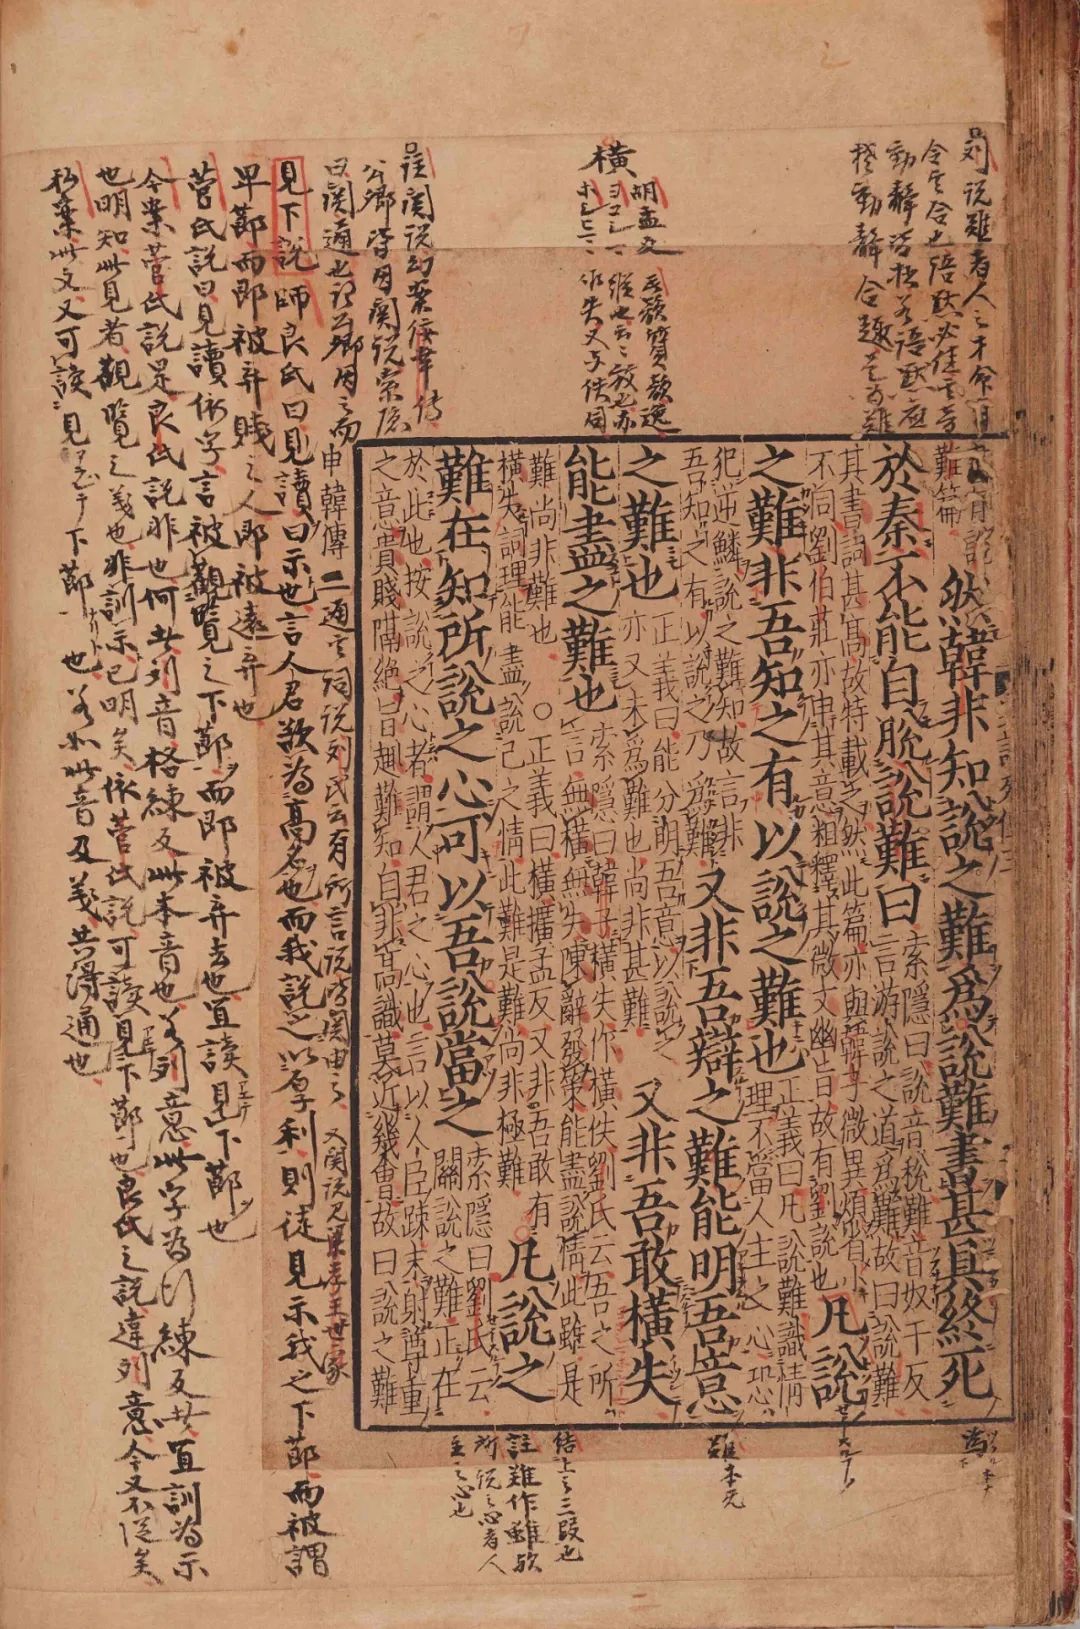 然韓非知說之難為說難書甚具終死
於秦不能自脫說難曰
索隱曰說音稅難音奴干反
言游說之道為難故曰說難
其書詞甚高故特載之然此篇亦與韓子微異煩省小
不同劉伯莊亦申其意粗釋其微文幽旨故有劉說也
凡說
之難非吾知之有以說之難也
正義曰凡說難識情
理不當人主之心恐
犯逆鱗說之難知故言非
吾知之有以說之乃為難
又非吾辯之難能明吾意
之難也
正義曰能分明吾意以說之
亦又未為難也尚非甚難
又非吾敢橫失
能盡之難也
索隱曰韓子橫失作橫佚劉氏云吾之所
言無橫無失陳辭發策能盡說情此雖是
難尚非難也○正義曰橫擴孟反又非吾敢有
橫失詞理能盡說己之情此難是難尚非極難
凡說之
難在知所說之心可以吾說當之
索隱曰劉氏云
關說之難正在
於此也按說之心者謂人君之心也言以人臣疎末射尊重
之意貴賤隔絕旨趣難知自非高識莫近幾會故曰說之難
橫
胡孟反
難本无
結上之三段也
註難作雖欤
所說之心者人
主之心也
註關說幻案佞幸傳
公卿皆因關說索隱
曰關通也謂公卿因之而
申韓傳
二通之詞說劉氏云有所言說皆關由之
又關說見梁孝王世家
見下說師良氏曰見讀曰示世言人君欲為高名也而我說之以厚利則徒見示我之下節而被謂
卑節而即被弃賤之人即被遠弃也
菅氏說曰見讀依字言被觀覽之下節而即被弃去也宜讀見下節也
今案菅氏說是良氏說非也何者列音格練反此本音也若列意此字為行練反者宜訓為示
也明知此見者觀覽之義也非訓示已明矣依菅氏說可讀見下節也良氏之說違列意今又不從矣
私案此文又可讀見下節也若如此音及義共得通也